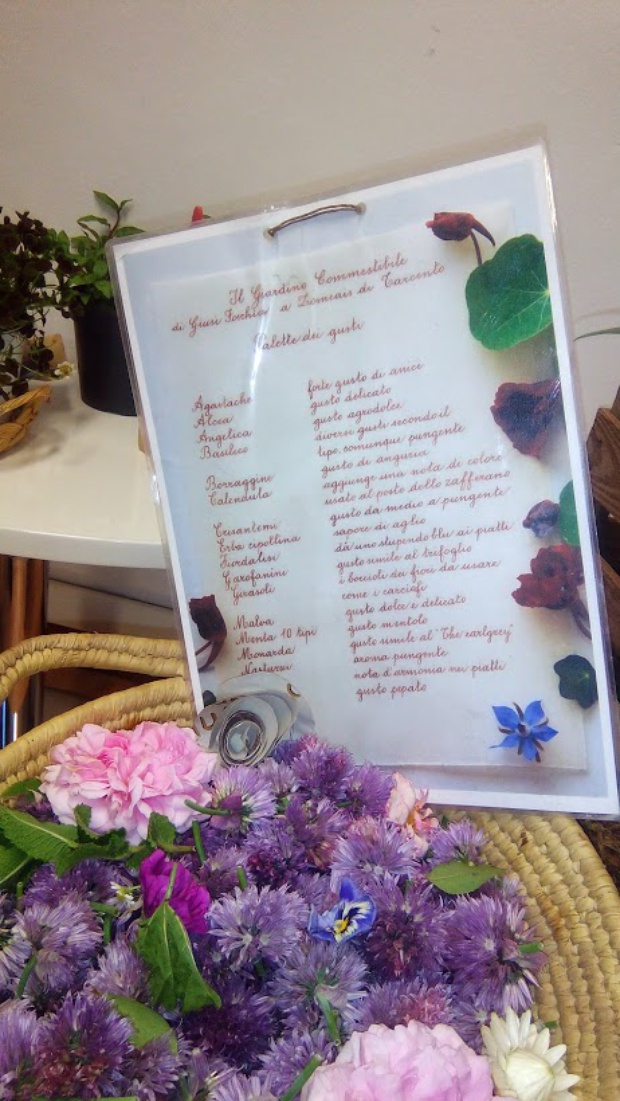 Il Giardino Commestibile
di Giusi a Zomeais di Tarcento
Palette dei gusti
Agastache forte gusto di anice
Alcea gusto delicato
Angelica gusto agrodolce
Basilico diversi gusti secondo il
tipo, comunque pungente
Borraggine gusto di anguria
Calendula aggiunge una nota di colore
usato al posto dello zafferano
Crisantemi gusto da medio a pungente
Erba cipollina sapore di aglio
Fiordalisi dà uno stupendo blu ai piatti
Garofanini gusto simile al trifoglio
Girasoli i boccioli dei fiori da usare
come i carciofi
Malva gusto dolce e delicato
Menta 10 tipi gusto mentolo
Monarda gusto simile al "The earlgrey"
Nasturzi aroma pungente
nota d'armonia nei piatti
gusto pepato